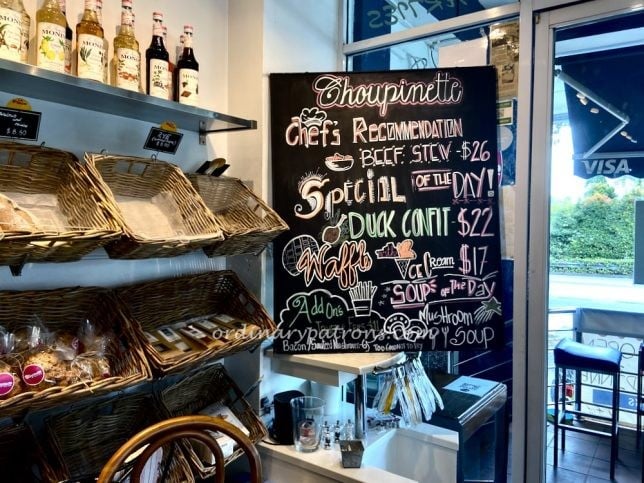 MONIN
MONIN
MONIN
MONIN
$8.50
RYE
Choupinette
Chef's RECOMMENDATION
BEEF STEW -$26
SPECIAL OF THE DAY!
DUCK CONFIT $22
Waffle ICE CREAM $17
SOUPS OF THE DAY
Add On's
MUSHROOM
SOUP
ordinarypatrons.com
VISA